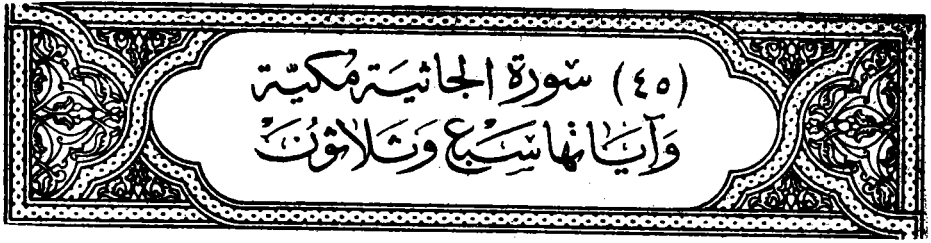 (٤٥) سورة الجاثية مكية
وَآياتها سَبع وَثلاثونَ